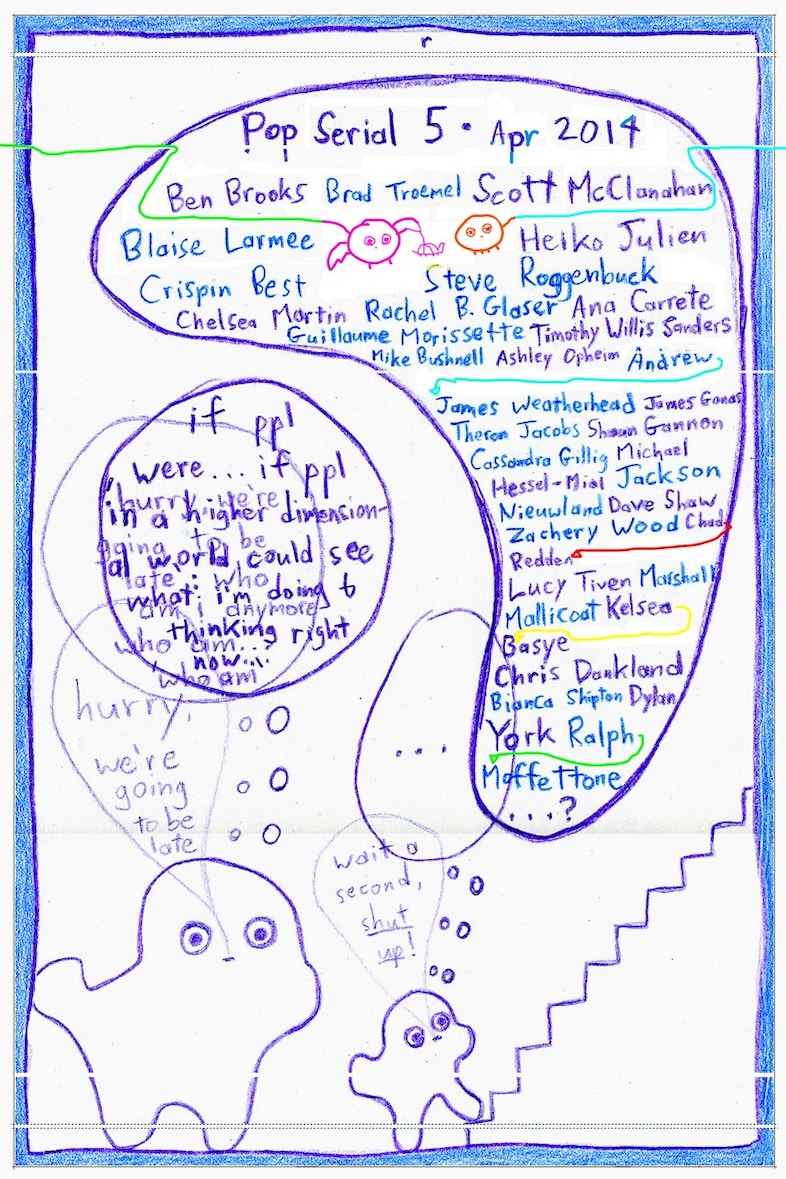 r
Pop Serial 5 · Apr 2014
Ben Brooks Brad Troemel Scott McClanahan
Blaise Larmee Heiko Julien
Crispin Best Steve Roggenbuck
Chelsea Martin Rachel B. Glaser Ana Carrete
Guillaume Morissette Timothy Willis Sanders
Mike Bushnell Ashley Opheim Andrew
James Weatherhead James Ganas
Theron Jacobs Shaun Gannon
Cassandra Gillig Michael
Hessel-Mial Jackson
Nieuwland Dave Shaw
Zachery Wood Chad
Redden
Lucy Tiven Marshall
Mallicoat Kelsea
Basye
Chris Dankland
Bianca Shipton Dylan
York Ralph
Maffettone
...?
if ppl
were... if ppl
in a higher dimension-
al world could see
what i'm doing &
thinking right
now...
hurry, we're
going to be
late : who
am i anymore
who am...
who am
hurry,
we're
going
to be
late
...
wait a
second,
shut
up!